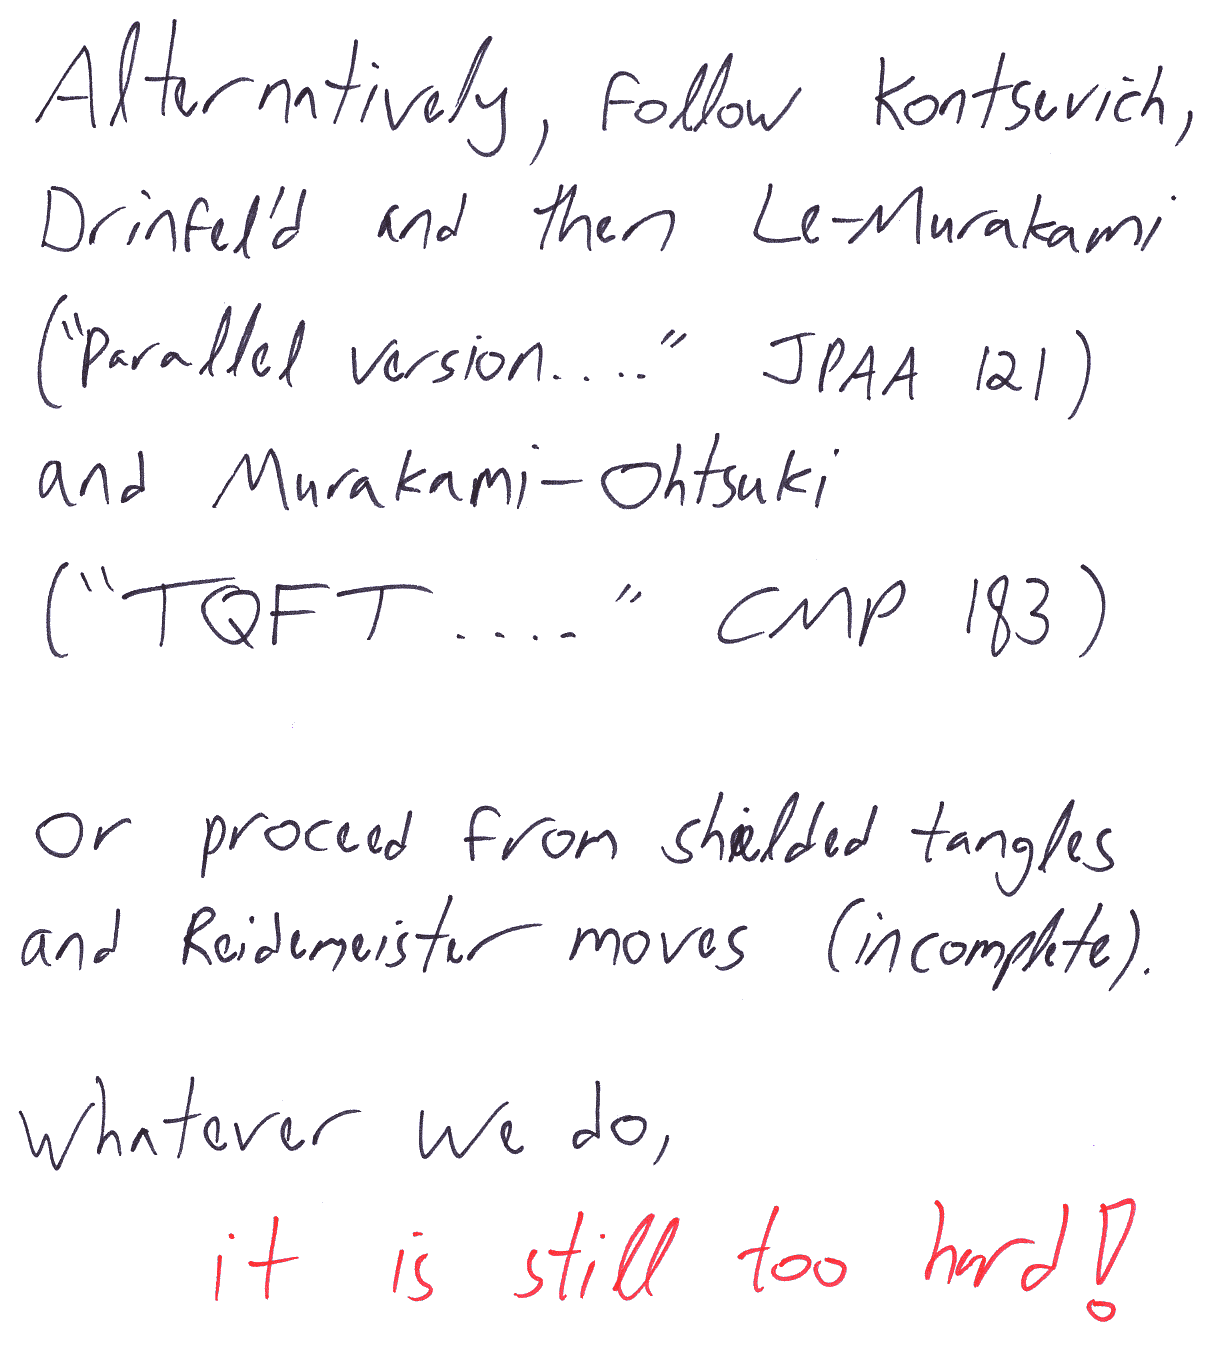 Alternatively, Follow Kontsevich,
Drinfel'd and then Le-Murakami
("Parallel version...." JPAA 121)
and Murakami-Ohtsuki
("TQFT ...." CMP 183)
Or proceed from shielded tangles
and Reidemeister moves (incomplete).
Whatever we do,
it is still too hard!